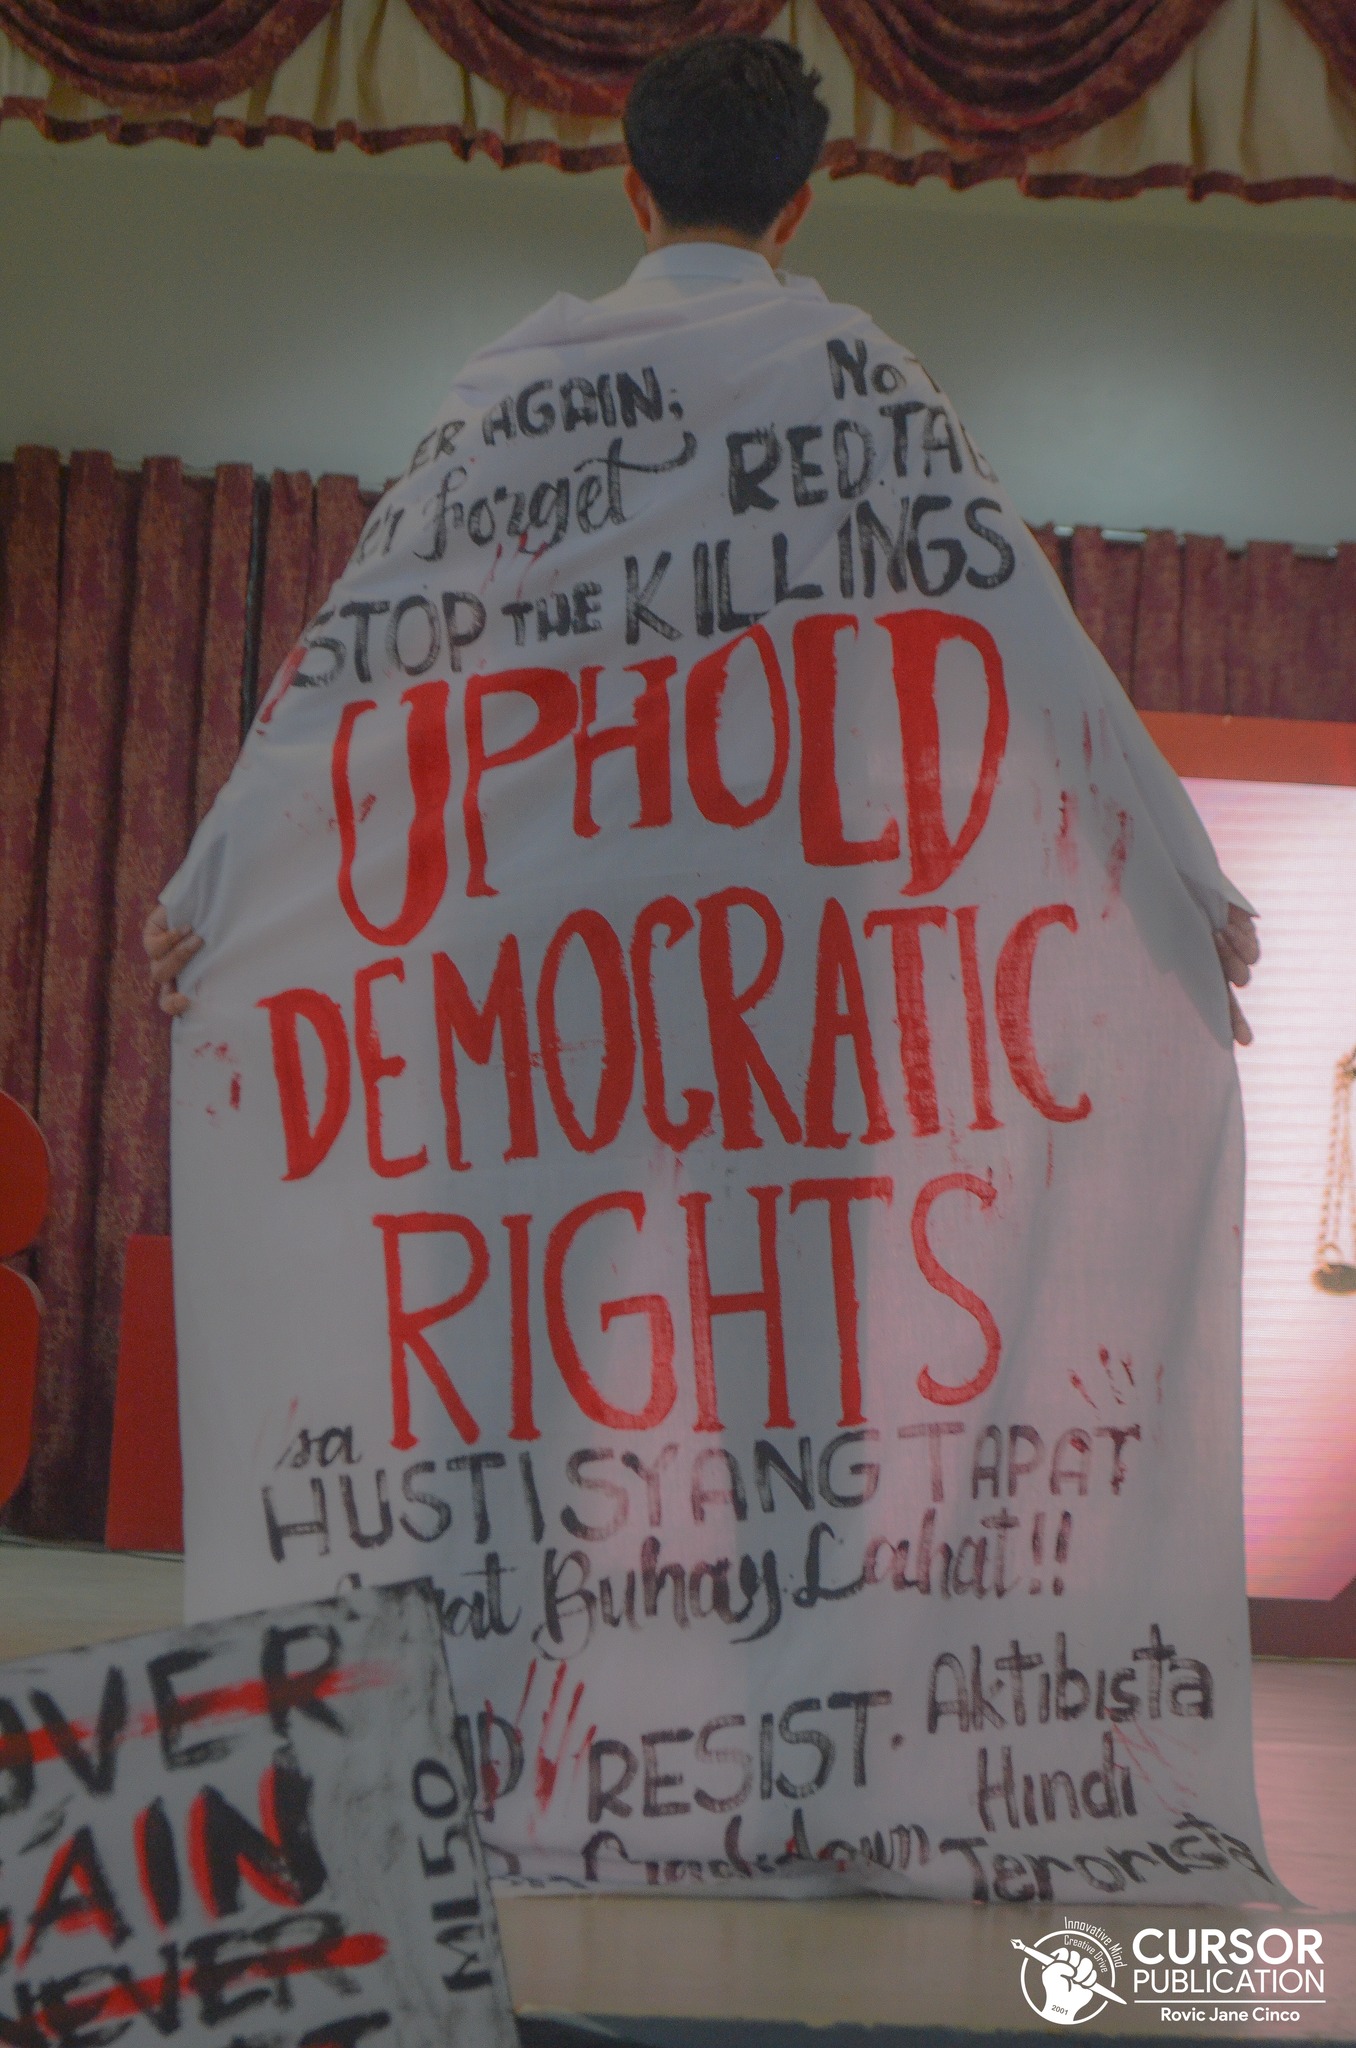 AGAIN;
forget
No
RED TAG
STOP THE KILLINGS
UPHOLD
DEMOCRATIC
RIGHTS
sa
HUSTISYANG TAPAT
Buhay Lahat!!
RESIST.
Aktibista
Hindi
Terorista
Crackdown
OVER
AIN
NEVER
ML50
Innovative Mind
Creative Drive
2001
CURSOR
PUBLICATION
Rovic Jane Cinco